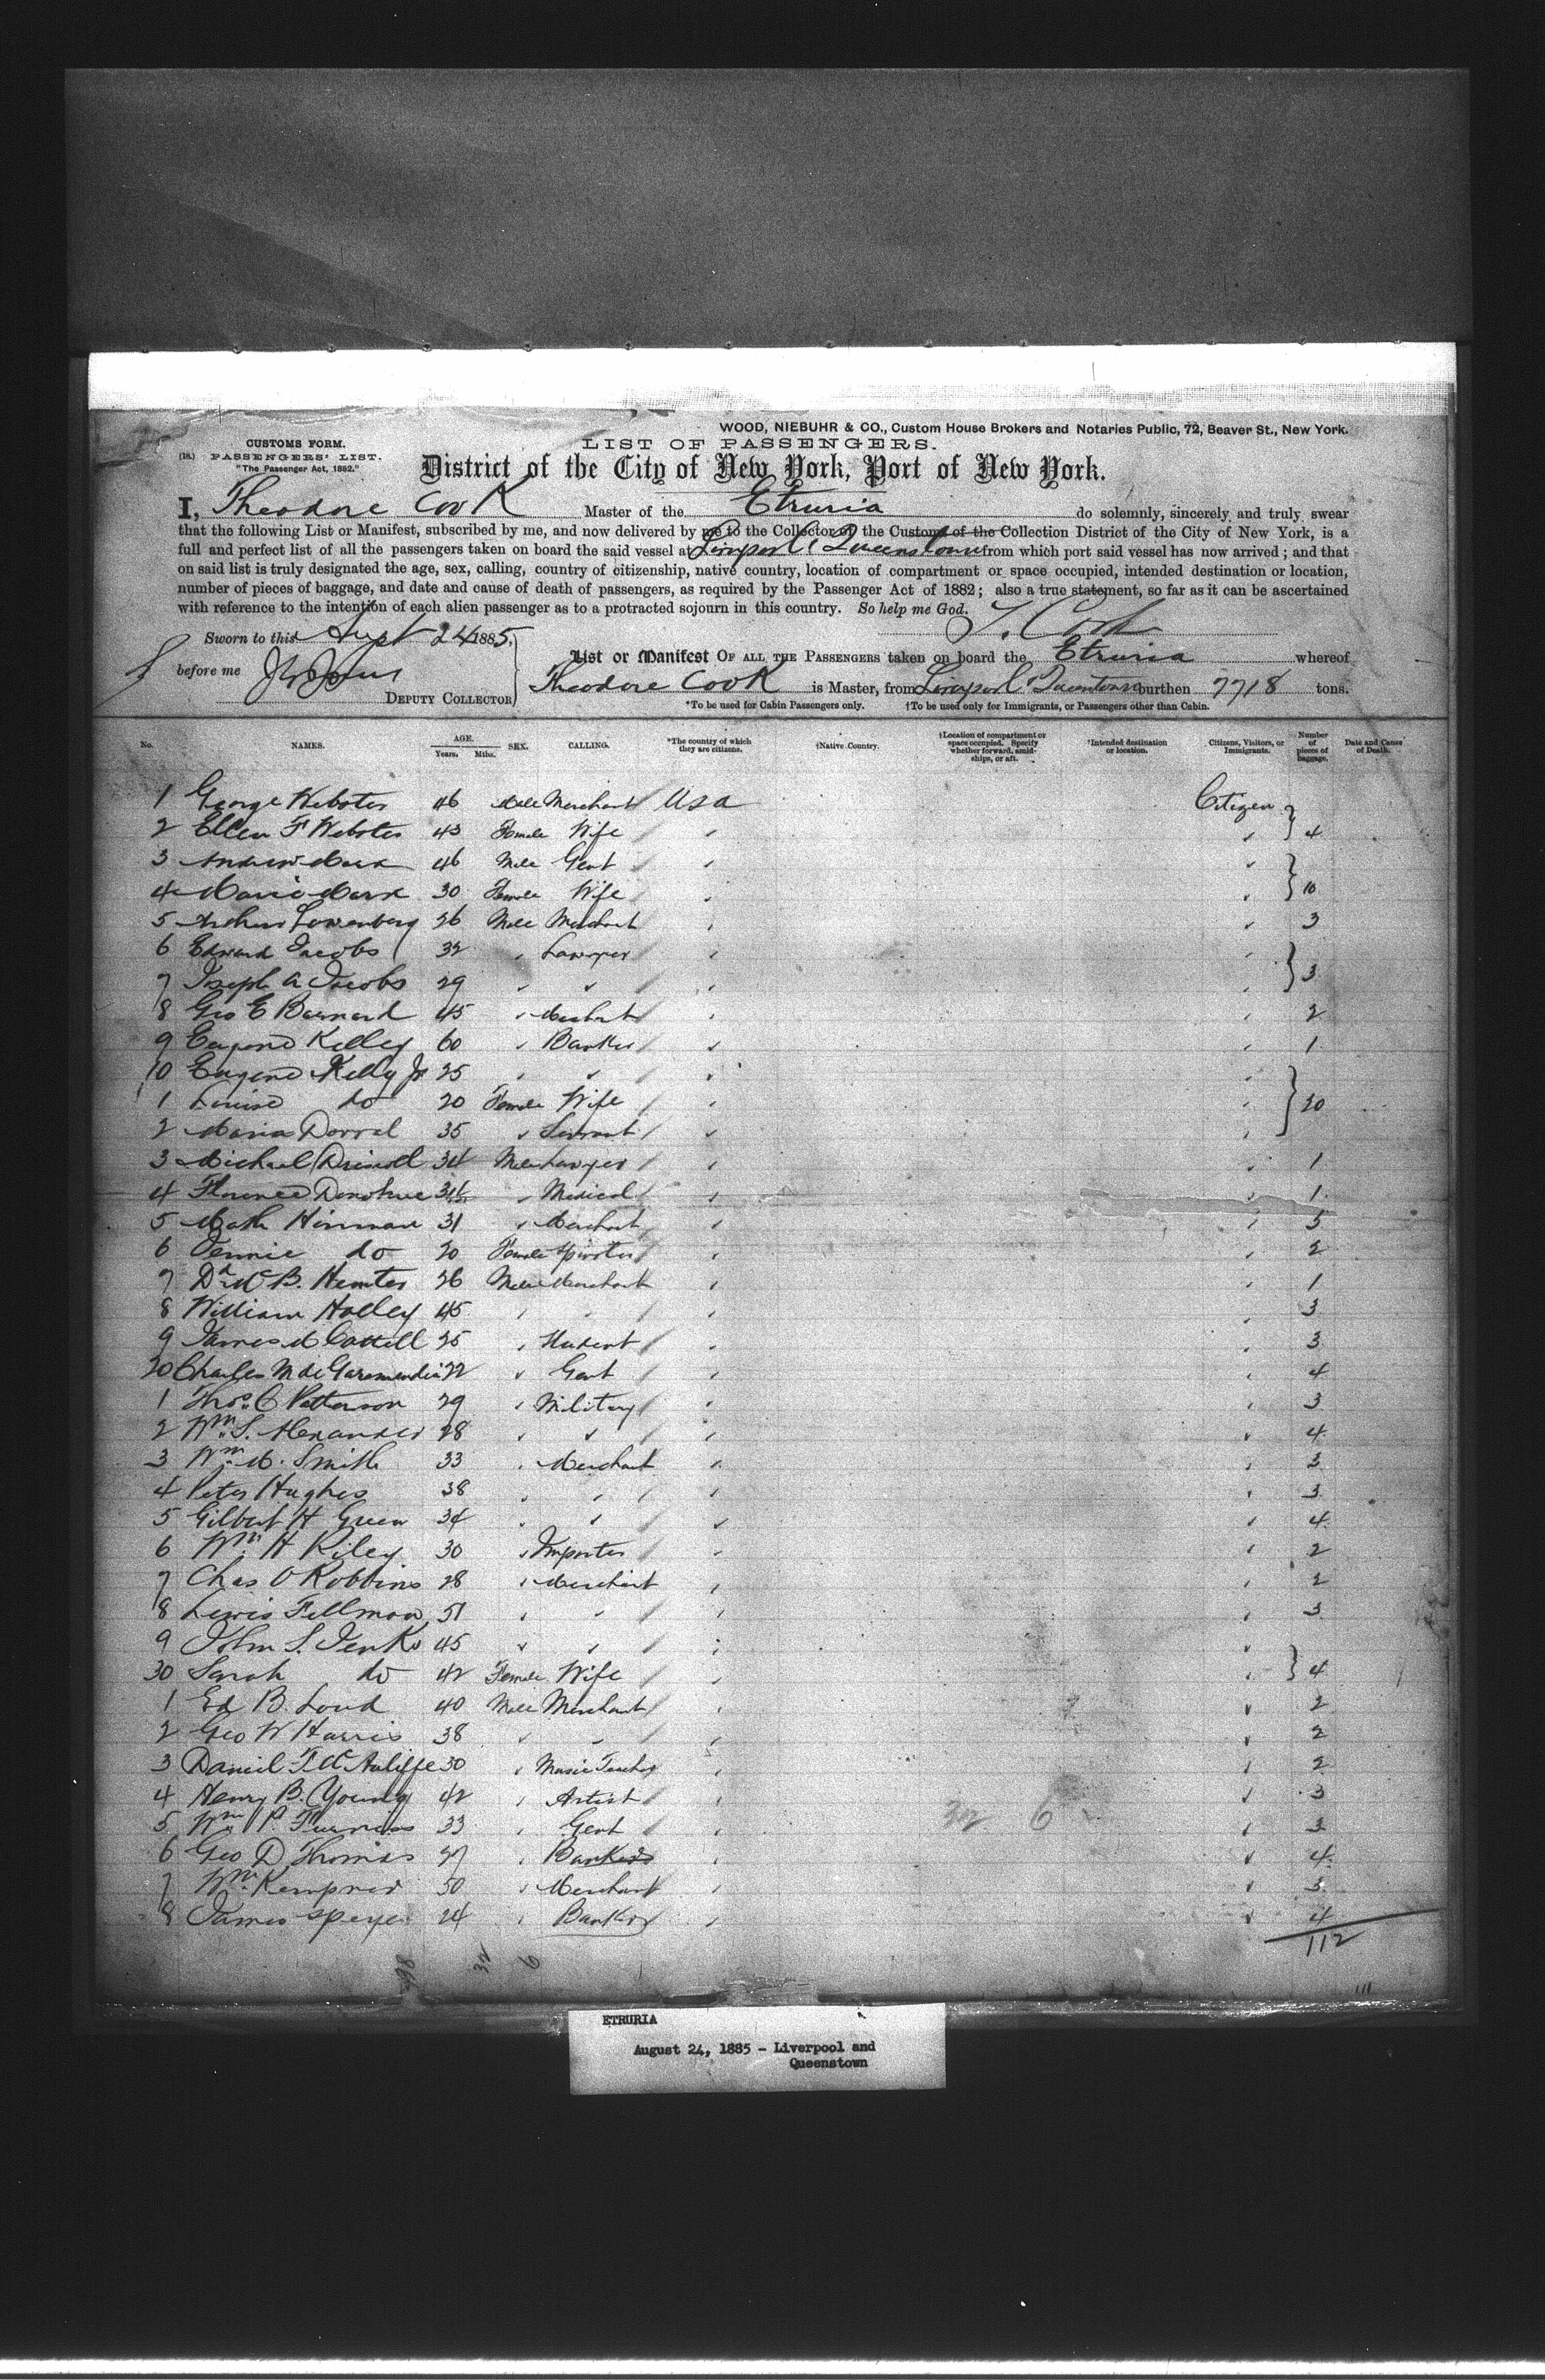 WOOD, NIEBUHR & CO., Custom House Brokers and Notaries Public, 72, Beaver St., New York.
CUSTOMS FORM.
LIST OF PASSENGERS.
(18.) PASSENGERS' LIST.
"The Passenger Act, 1882."
District of the City of New York, Port of New York.
I, Theodore Cook Master of the Etruria do solemnly, sincerely and truly swear
that the following List or Manifest, subscribed by me, and now delivered by me to the Collector of the Customs of the Collection District of the City of New York, is a
full and perfect list of all the passengers taken on board the said vessel at Liverpool & Queenstown from which port said vessel has now arrived; and that
on said list is truly designated the age, sex, calling, country of citizenship, native country, location of compartment or space occupied, intended destination or location,
number of pieces of baggage, and date and cause of death of passengers, as required by the Passenger Act of 1882; also a true statement, so far as it can be ascertained
with reference to the intention of each alien passenger as to a protracted sojourn in this country. So help me God.
T. Cook
Sworn to this Augt 24 1885,
List or Manifest OF ALL THE PASSENGERS taken on board the Etruria whereof
before me
Theodore Cook is Master, from Liverpool & Queenstown burthen 7718 tons.
DEPUTY COLLECTOR
*To be used for Cabin Passengers only. †To be used only for Immigrants, or Passengers other than Cabin.
No. NAMES. AGE. Years. Mths. SEX. CALLING. *The country of which they are citizens. †Native Country. †Location of compartment or space occupied. Specify whether forward, amidships, or aft. †Intended destination or location. Citizens, Visitors, or Immigrants. Number of pieces of baggage. Date and Cause of Death.
1 George Webster 46 Male Merchant USA Citizen
2 Ellen F Webster 43 Female Wife 4
3 Andrew Mack 46 Male Gent
4 Marie Mark 30 Female Wife 10
5 Arthur Lowenberg 26 Male Merchant 3
6 Edward Jacobs 32 Lawyer
7 Joseph A Jacobs 29 3
8 Geo E Barnard 45 Merchant 2
9 Eugene Kelley 60 Banker 1
10 Eugene Kelly Jr 25
1 Louise do 20 Female Wife 20
2 Maria Dorral 35 Servant
3 Michael Driscoll 34 Male Lawyer 1
4 Florence Donohue 34 Medical 1
5 Math Hinman 31 Merchant 5
6 Jennie do 20 Female Spinster 2
7 Dd McB. Hunter 26 Male Merchant 1
8 William Holley 45 3
9 James M Cattell 25 Student 3
20 Charles M de Garmendia 22 Gent 4
1 Thos. C Patterson 29 Military 3
2 Wm. S. Alexander 28 4
3 Wm. M. Smith 33 Merchant 3
4 Peter Hughes 38 3
5 Gilbert H Green 34 4
6 Wm. H Riley 30 Importer 2
7 Chas O Robbins 28 Merchant 2
8 Lewis Fellman 51 3
9 John S. Jenks 45
30 Sarah do 42 Female Wife 4
1 Ed B. Loud 40 Male Merchant 2
2 Geo W Harris 38 2
3 Daniel F McAuliffe 30 Music Teacher 2
4 Henry B. Young 42 Artist 3
5 Wm P. Furniss 33 Gent 3
6 Geo D Thomas 27 Banker 4
7 Wm. Kempner 50 Merchant 3
8 James Speyer 24 Banker 4
112
32 6
38 32 6
111
ETRURIA
August 24, 1885 - Liverpool and
Queenstown